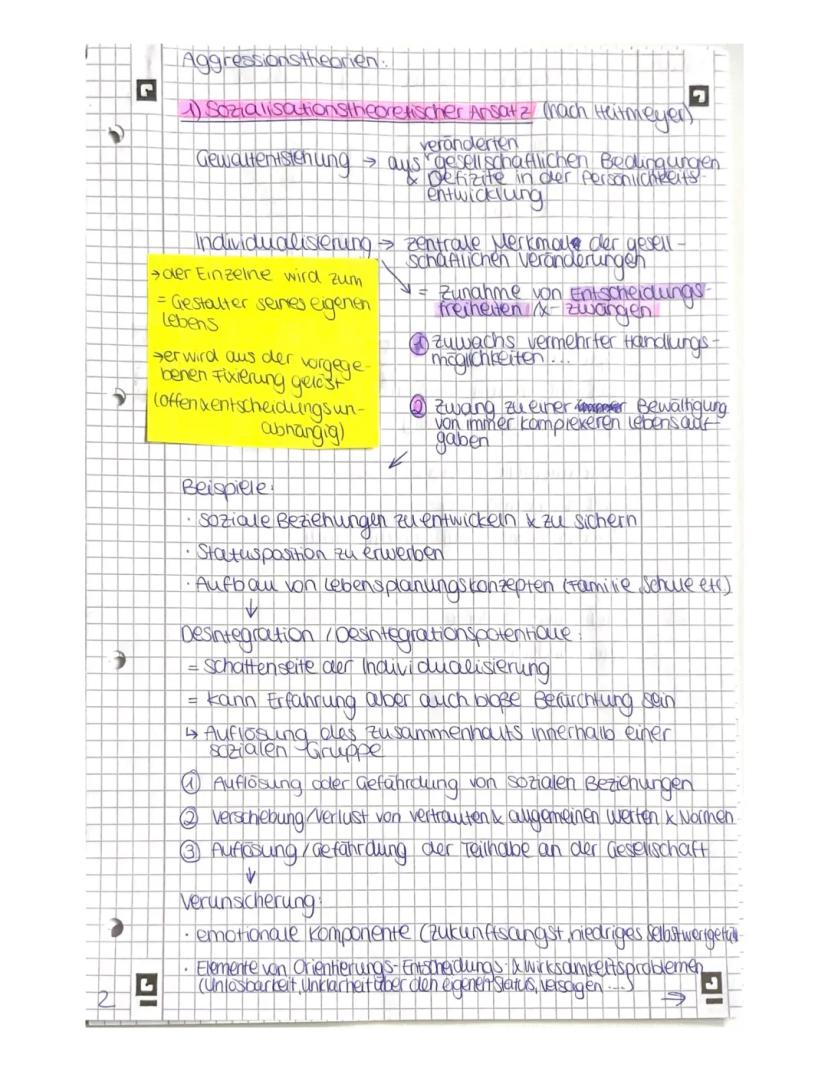 Aggressionstheorien:
1) Sozialisationstheoretischer Ansatz (nach Heitmeyer)
Gewaltentstehung → aus veränderten gesellschaftlichen Bedingungen
& Defizite in der Persönlichkeits-
entwicklung
Individualisierung → zentrale Merkmale der gesell-
schaftlichen Veränderungen
= Zunahme von Entscheidungs-
freiheiten &- zwängen
① Zuwachs vermehrter Handlungs-
möglichkeiten ...
② Zwang zu einer Bewältigung
von immer komplexeren Lebensauf-
gaben
→ der Einzelne wird zum
= Gestalter seines eigenen
Lebens
→ er wird aus der vorgege-
benen Fixierung gelöst
(offen & entscheidungsun-
abhängig)
Beispiele:
· soziale Beziehungen zu entwickeln & zu sichern
· Statusposition zu erwerben
· Aufbau von Lebensplanungskonzepten (Familie, Schule etc)
↓
Desintegration / Desintegrationspotentiale:
= Schattenseite der Individualisierung
= kann Erfahrung aber auch bloße Befürchtung sein
↳ Auflösung des Zusammenhalts innerhalb einer
sozialen Gruppe
① Auflösung oder Gefährdung von sozialen Beziehungen
② Verschebung/Verlust von vertrauten & allgemeinen Werten & Normen
③ Auflösung/Gefährdung der Teilhabe an der Gesellschaft
↓
Verunsicherung:
· emotionale Komponente (Zukunftsangst, niedriges Selbstwertgefül
· Elemente von Orientierungs- Entscheidungs- & Wirksamkeitsproblemen
(Unlösbarkeit, Unklarheit über den eigenen Status, Versagen ...) →
2